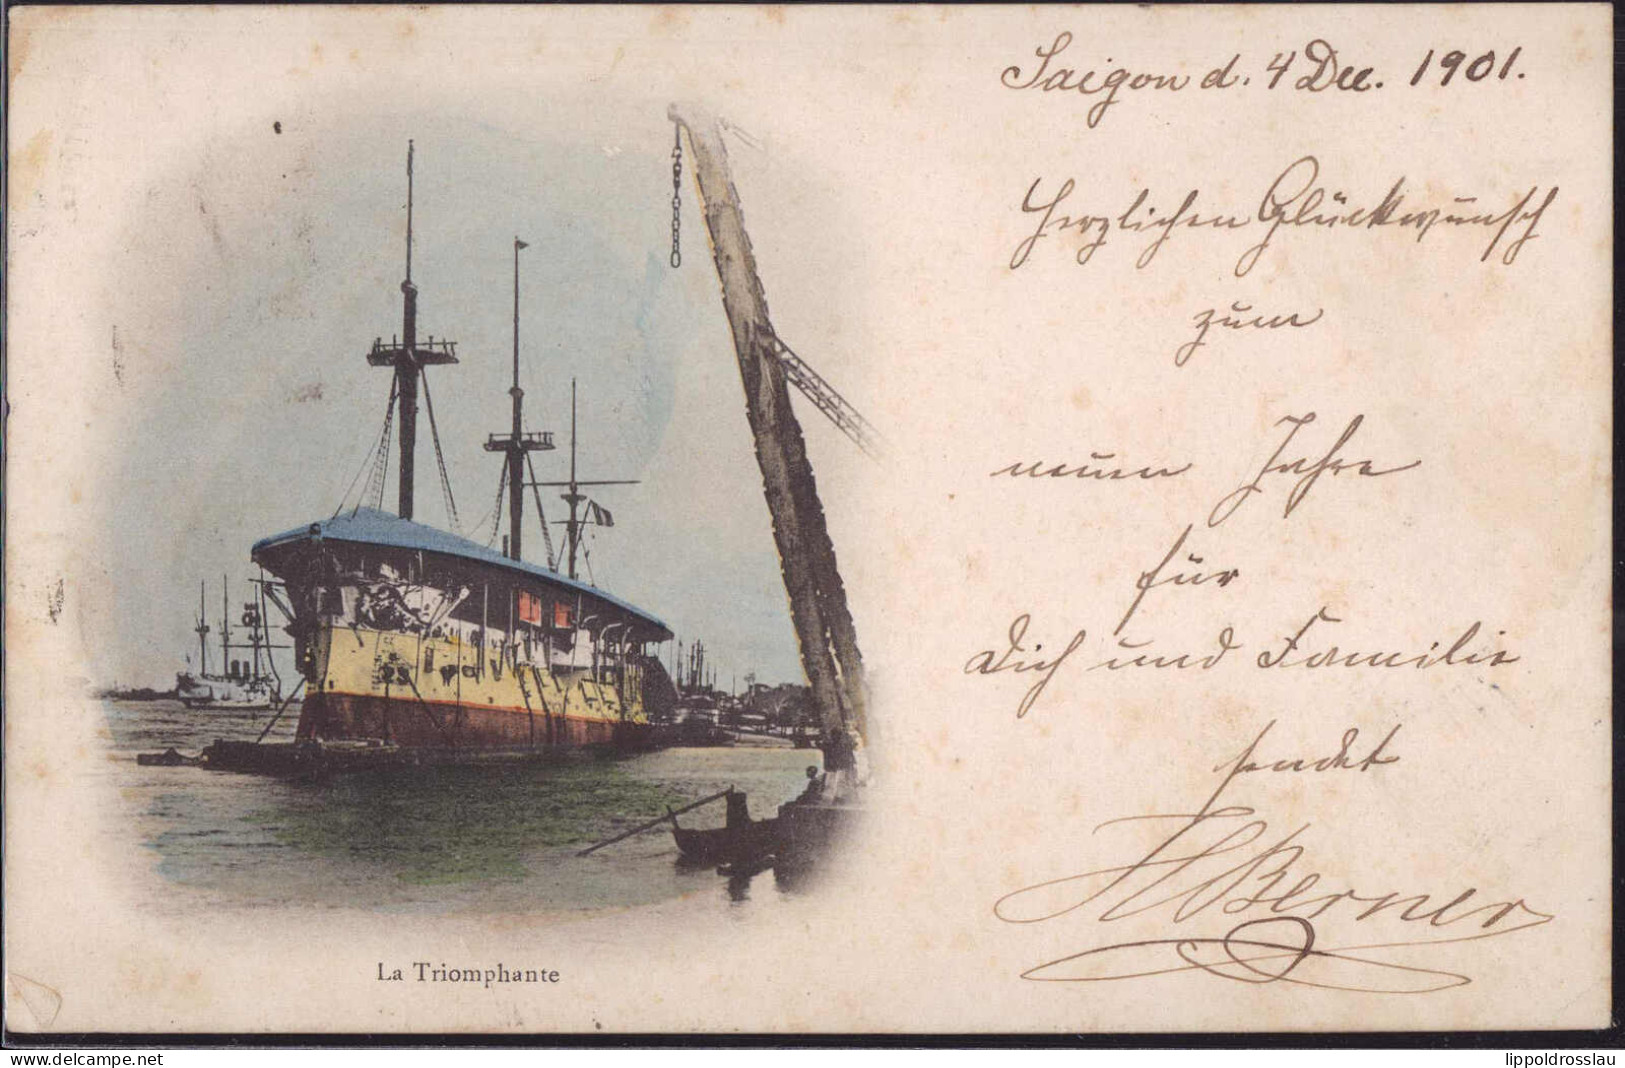 Saigon d. 4 Dec. 1901.
Herzlichen Glückwunsch
zum
neuen Jahre
für
Dich und Familie
sendet
H Berner
La Triomphante
delcampe.net
lippoldrosslau